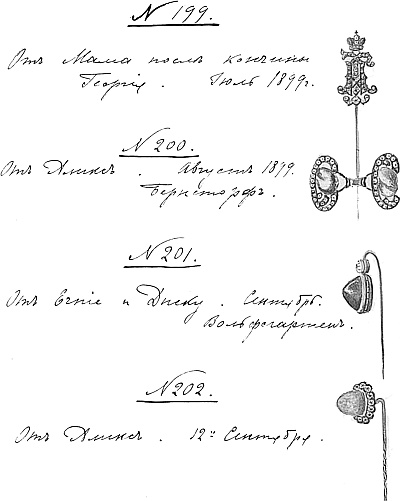 N 199.
Отъ Мама послѣ кончины
Георгія. Іюль 1899г.
N 200.
Отъ Аликсъ. Августъ 1899.
Бернсторфъ.
N 201.
Отъ Эрни и Дыску. Сентябрь.
Вольфсгартенъ.
N 202.
Отъ Аликсъ. 12го Сентября.